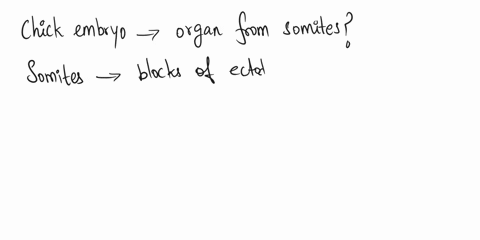 Chick embryo → organ from somites?
Somites → blocks of ectod